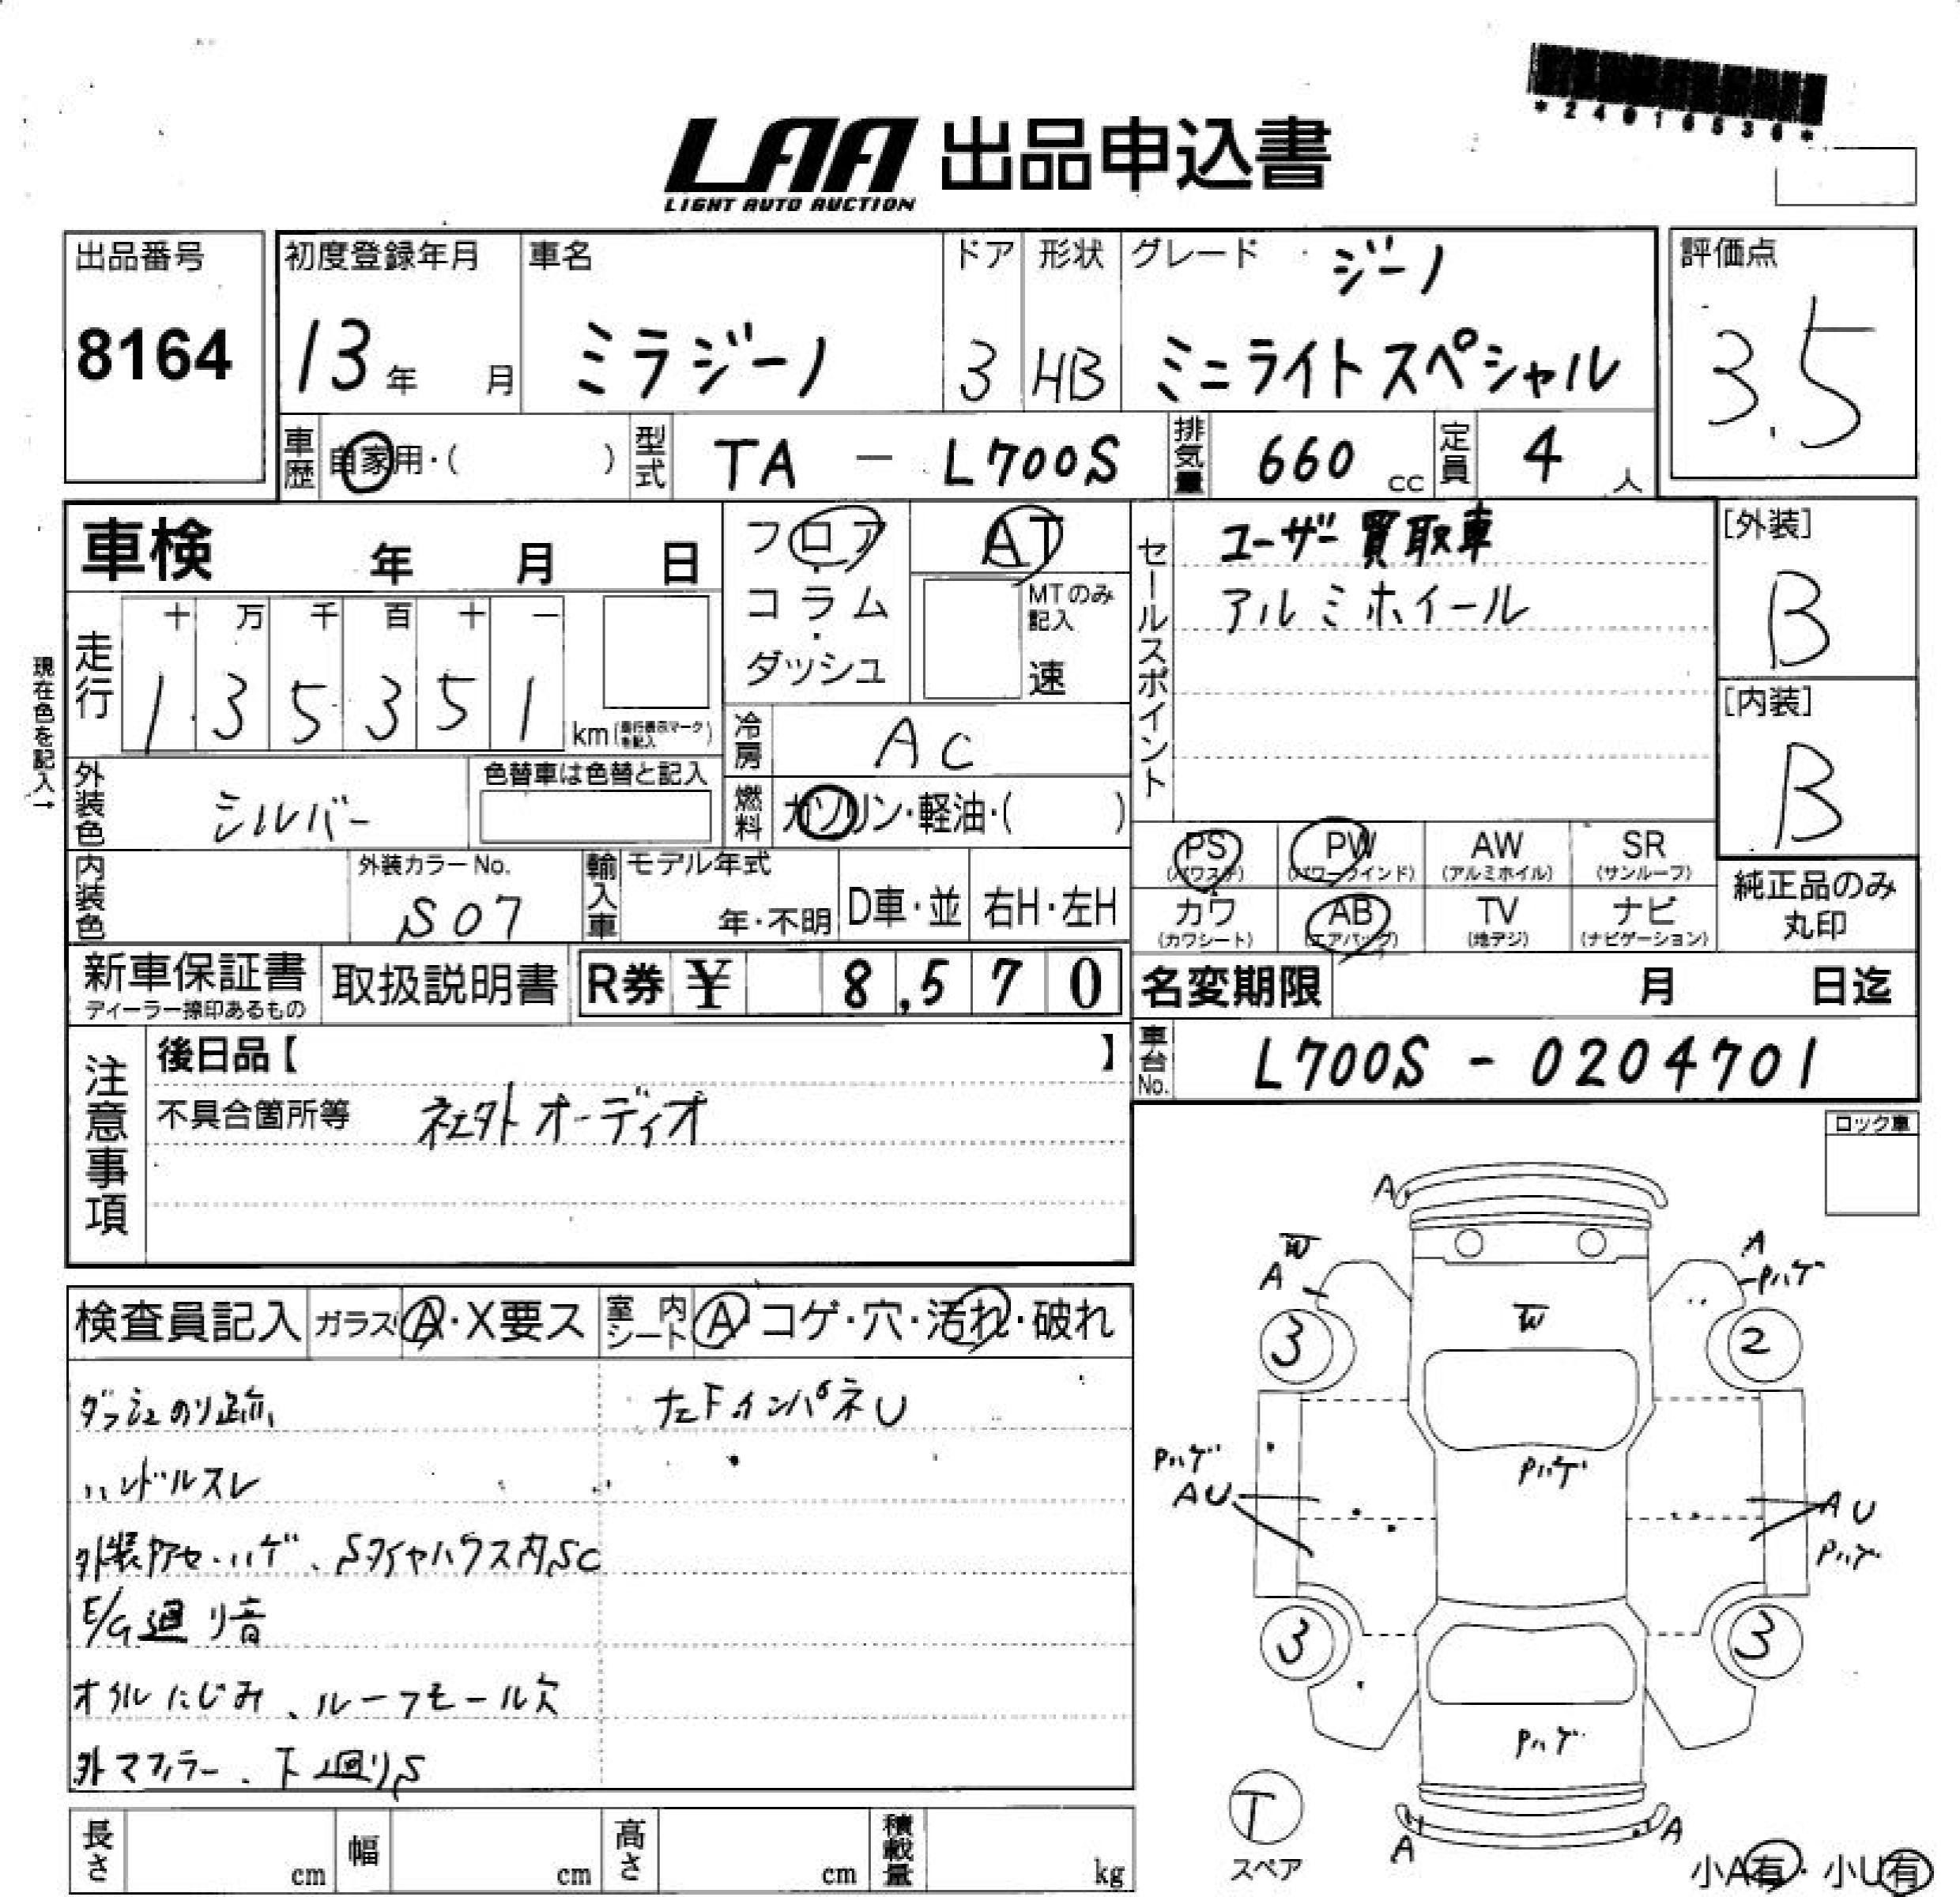 *24016536*
LAA 出品申込書
LIGHT AUTO AUCTION
出品番号
8164
初度登録年月
13年 月
車名
ミラジーノ
ドア
3
形状
HB
グレード ジーノ
ミニライトスペシャル
評価点
3.5
車歴 自家用・( )
型式 TA - L700S
排気量 660 cc
定員 4 人
車検 年 月 日
フロア
・
コラム
・
ダッシュ
AT
MTのみ
記入
速
セールスポイント
ユーザー買取車
アルミホイール
[外装]
B
[内装]
B
現在色を記入→
走行
十 万 千 百 十 一
1 3 5 3 5 1
km (走行表示マークを記入)
冷房 AC
外装色 シルバー
色替車は色替と記入
燃料 ガソリン・軽油・( )
内装色
外装カラーNo.
S07
輸入車
モデル年式
年・不明
D車・並
右H・左H
PS
(パワステ)
PW
(パワーウインド)
AW
(アルミホイル)
SR
(サンルーフ)
カワ
(カワシート)
AB
(エアバッグ)
TV
(地デジ)
ナビ
(ナビゲーション)
純正品のみ
丸印
新車保証書
ディーラー捺印あるもの
取扱説明書
R券 ¥ 8,570
名変期限 月 日迄
車台No. L700S - 0204701
注意事項
後日品【 】
不具合箇所等 社外オーディオ
ロック車
検査員記入
ガラス A・X要ス
室内シート A コゲ・穴・汚れ・破れ
ダッシュのり跡
左下インパネU
ハンドルスレ
外装アセ・ハゲ、SタイヤハウスS内SC
E/G廻り音
オイルにじみ、ルーフモール欠
外マフラー、下廻りS
A
W
A
A
Pハゲ
W
3
2
Pハゲ
AU
Pハゲ
AU
Pハゲ
3
3
Pハゲ
T
スペア
A
A
小A有・小U有
長さ cm
幅 cm
高さ cm
積載量 kg